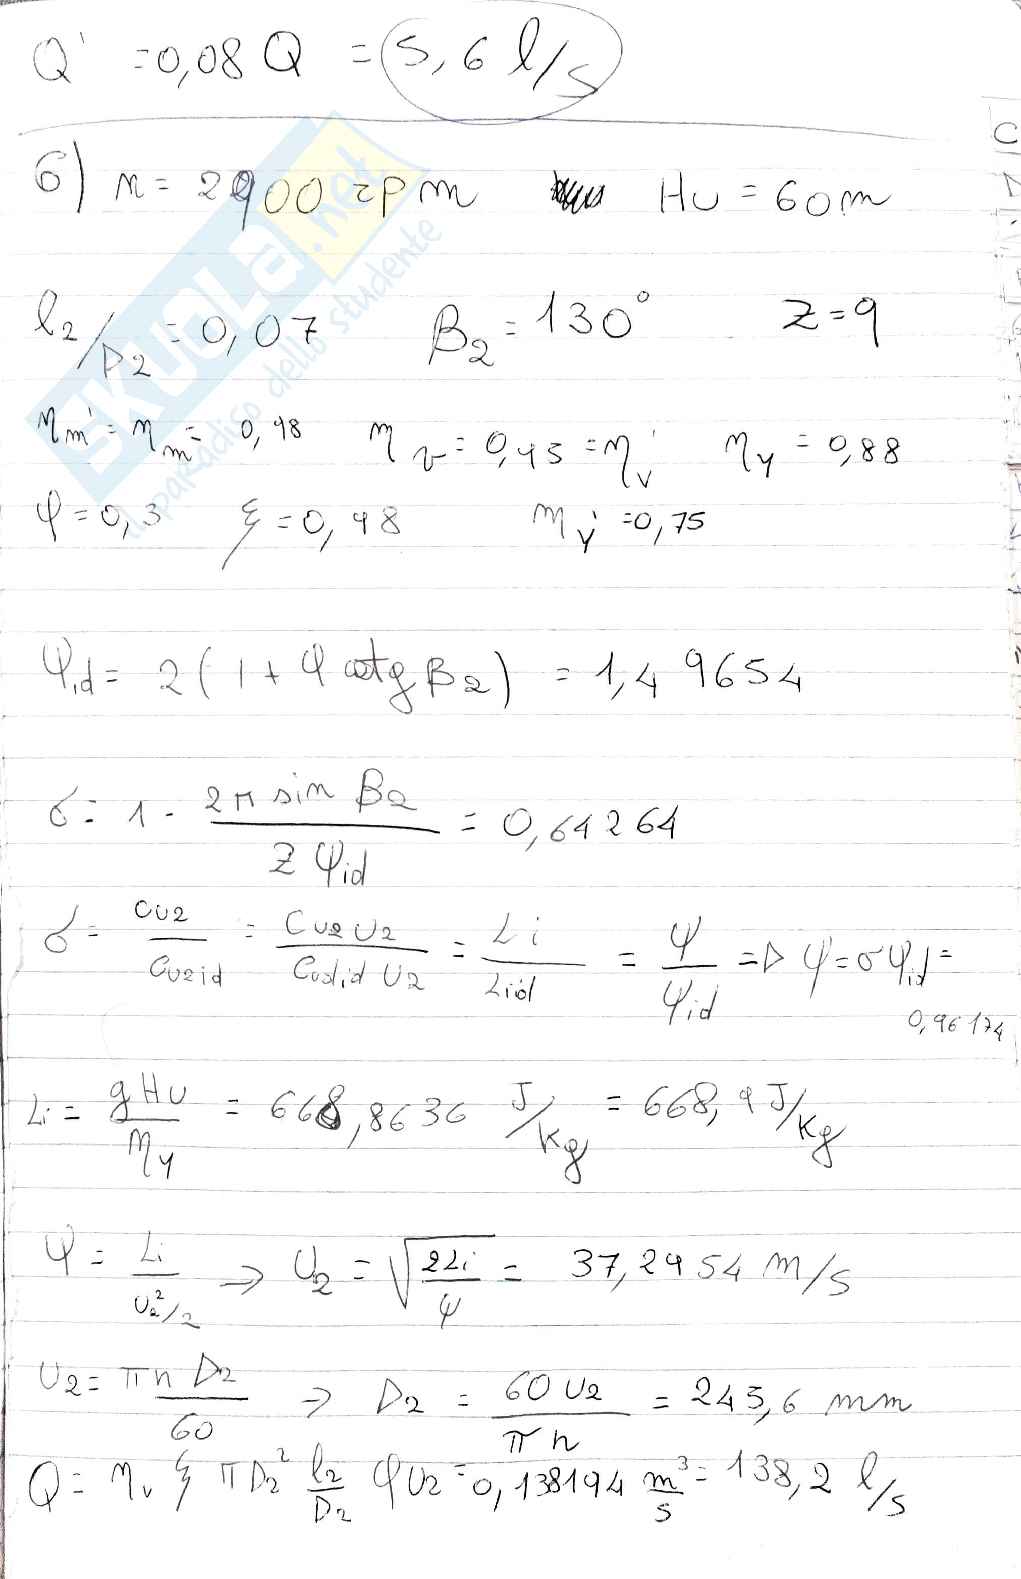 Q' = 0,08 Q = 5,6 l/s
6) n = 2900 rpm Hu = 60 m
l2/D2 = 0,07 β2 = 130° Z = 9
ηm' = ηm = 0,98 ηv = 0,95 = ηv' ηy = 0,88
φ = 0,3 ξ = 0,98 ηy' = 0,75
ψid = 2 (1 + φ cotg β2) = 1,49654
σ = 1 - 2π sin β2 / Z ψid = 0,64264
σ = Cu2 / Cu2id = Cu2 U2 / Cu2,id U2 = Li / Liid = ψ / ψid => ψ = σ ψid = 0,96174
Li = g Hu / ηy = 668,8636 J/kg = 668,9 J/kg
ψ = Li / U2²/2 => U2 = √2Li / ψ = 37,2954 m/s
U2 = π n D2 / 60 => D2 = 60 U2 / π n = 245,6 mm
Q = ηv ξ π D2² l2/D2 φ U2 = 0,138194 m³/s = 138,2 l/s
SKUOLA.net
il paradiso dello studente